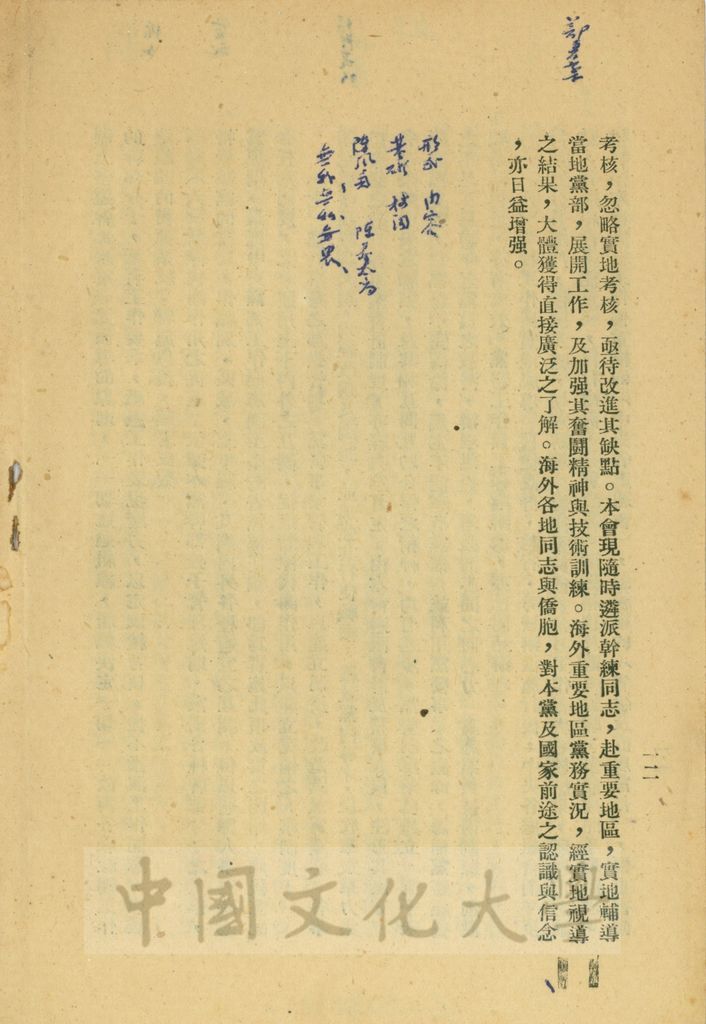 考核，忽略實地考核，亟待改進其缺點。本會現隨時遴派幹練同志，赴重要地區，實地輔導
當地黨部，展開工作，及加强其奮鬪精神與技術訓練。海外重要地區黨務實況，經實地視導
之結果，大體獲得直接廣泛之了解。海外各地同志與僑胞，對本黨及國家前途之認識與信念
，亦日益增强。
形式　內容
一二
中國文化大學